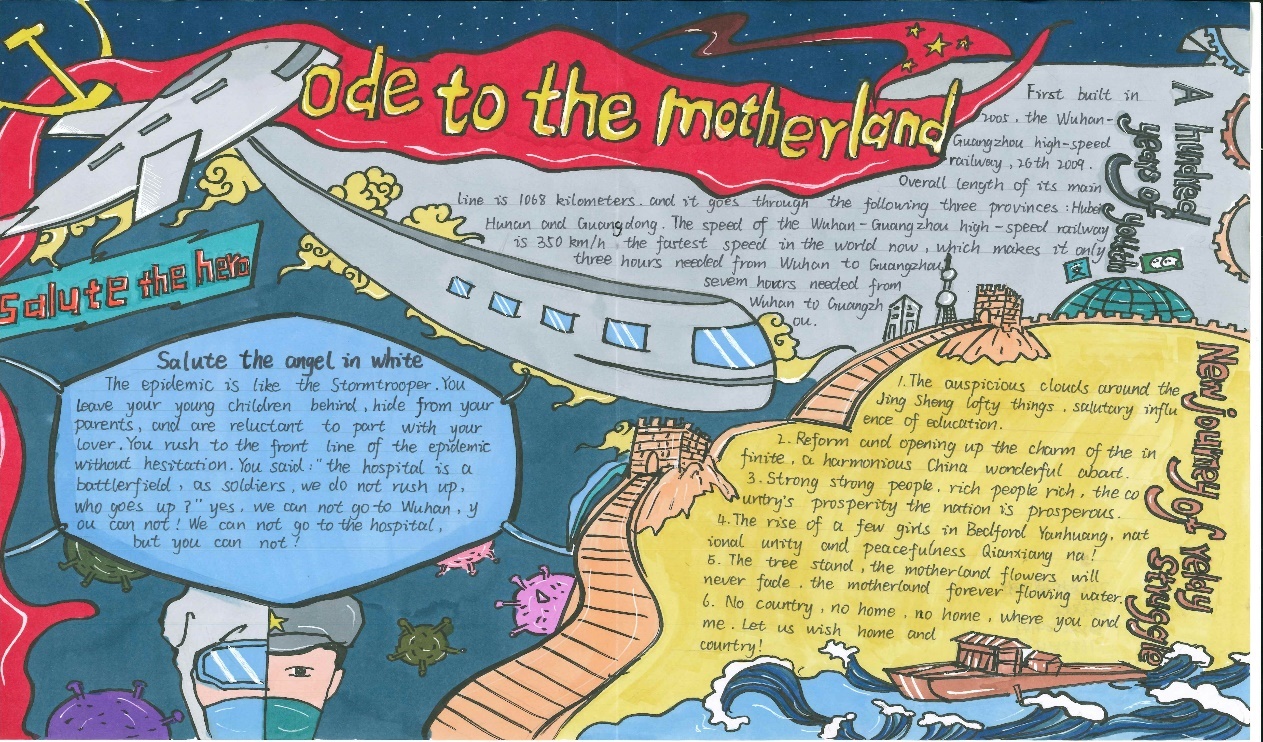 Ode to the motherland
First built in
2005, the Wuhan-
Guangzhou high-speed
railway, 26th 2009.
Overall length of its main
line is 1068 kilometers. and it goes through the following three provinces: Hubei
Hunan and Guangdong. The speed of the Wuhan-Guangzhou high-speed railway
is 350 km/h, the fastest speed in the world now, which makes it only
three hours needed from Wuhan to Guangzhou
seven hours needed from
Wuhan to Guangzh
ou.
A hundred
years of youth
Salute the hero
Salute the angel in white
The epidemic is like the Stormtrooper. You
leave your young children behind, hide from your
parents, and are reluctant to part with your
lover. You rush to the front line of the epidemic
without hesitation. You said: "the hospital is a
battlefield, as soldiers, we do not rush up,
who goes up?" yes, we can not go to Wuhan, y
ou can not! We can not go to the hospital,
but you can not!
New journey of relay
struggle
1. The auspicious clouds around the
Jing Sheng lofty things, salutary influ
ence of education.
2. Reform and opening up the charm of the in
finite, a harmonious China wonderful about.
3. Strong strong people, rich people rich, the co
untry's prosperity the nation is prosperous.
4. The rise of a few girls in Bedford Yanhuang, nat
ional unity and peacefulness Qianxiang na!
5. The tree stand, the motherland flowers will
never fade, the motherland forever flowing water.
6. No country, no home, no home, where you and
me. Let us wish home and
country!